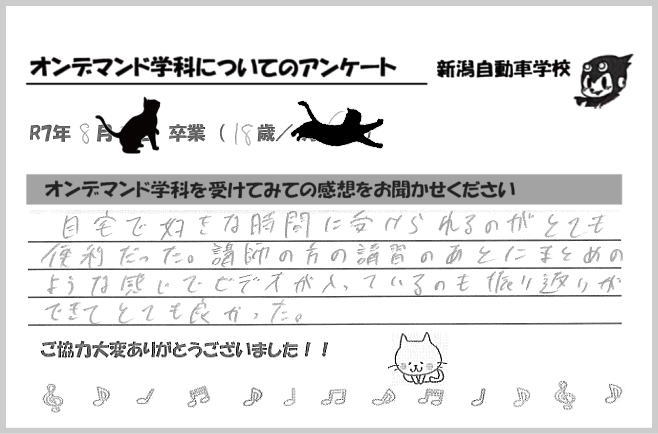 オンデマンド学科についてのアンケート
新潟自動車学校
R7年 8月 卒業 (18歳/
オンデマンド学科を受けてみての感想をお聞かせください
自宅で好きな時間に受けられるのがとても
便利だった。講師の方の講習のあとにまとめの
ような感じでビデオが入っているのも振り返りが
できてとても良かった。
ご協力大変ありがとうございました!!